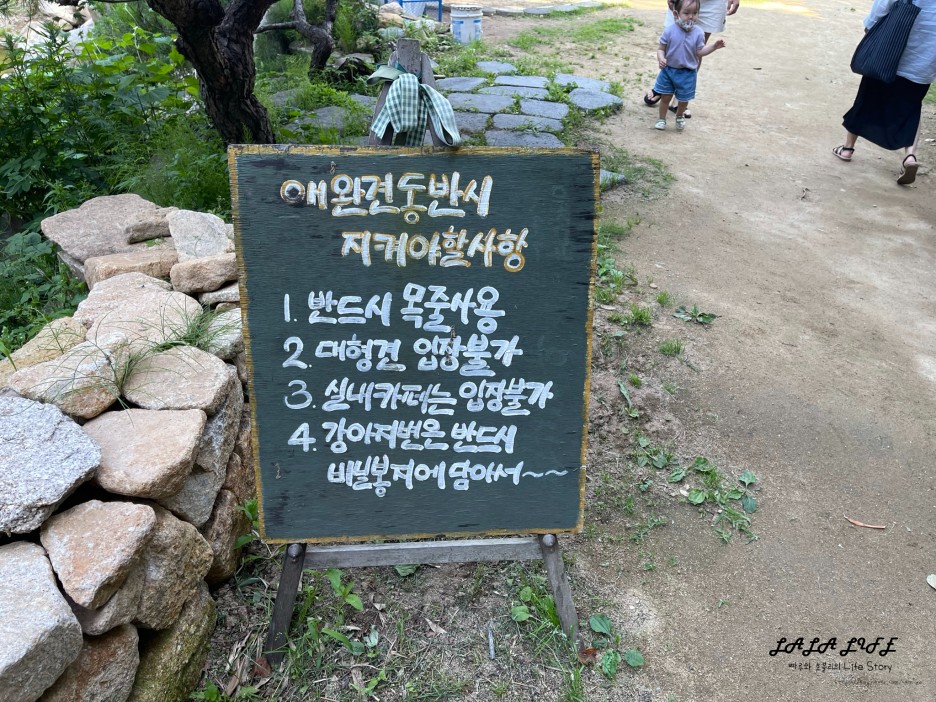 애완견동반시
지켜야할사항
1. 반드시 목줄사용
2. 대형견 입장불가
3. 실내카페는 입장불가
4. 강아지변은 반드시
비닐봉지에 담아서~~
LALA LIFE
Life Story